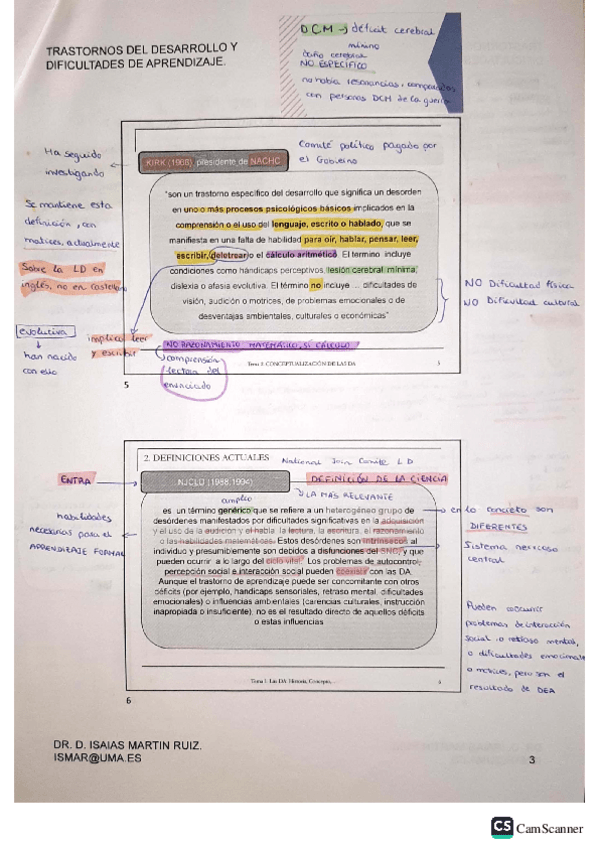 DCM → déficit cerebral
mínimo
daño cerebral
NO ESPECÍFICO
no había resonancias, comparados
con personas DCM de la guerra
TRASTORNOS DEL DESARROLLO Y
DIFICULTADES DE APRENDIZAJE.
Comité político pagado por
el Gobierno
Ha seguido
investigando
KIRK (1968), presidente de NACHC
"son un trastorno específico del desarrollo que significa un desorden
en uno o más procesos psicológicos básicos implicados en la
comprensión o el uso del lenguaje, escrito o hablado, que se
manifiesta en una falta de habilidad para oír, hablar, pensar, leer,
escribir, deletrear o el cálculo aritmético. El término incluye
condiciones como hándicaps perceptivos, lesión cerebral mínima,
dislexia o afasia evolutiva. El término no incluye ... dificultades de
visión, audición o motrices, de problemas emocionales o de
desventajas ambientales, culturales o económicas"
Se mantiene esta
definición, con
matices, actualmente
Sobre la LD en
inglés, no en castellano
NO Dificultad física
NO Dificultad cultural
evolutiva
han nacido
con esto
implica leer
y escribir
NO RAZONAMIENTO MATEMÁTICO, SÍ CÁLCULO
comprensión
lectora del
enunciado
Tema 1 CONCEPTUALIZACIÓN DE LAS DA
5
2. DEFINICIONES ACTUALES
National Join Comite LD
ENTRA
NJCLD (1988,1994)
DEFINICIÓN DE LA CIENCIA
LA MÁS RELEVANTE
amplio
es un término genérico que se refiere a un heterogéneo grupo de
desórdenes manifestados por dificultades significativas en la adquisición
y el uso de la audición y el habla, la lectura, la escritura, el razonamiento
o las habilidades matemáticas. Estos desórdenes son intrínsecos al
individuo y presumiblemente son debidos a disfunciones del SNC, y que
pueden ocurrir a lo largo del ciclo vital. Los problemas de autocontrol,
percepción social e interacción social pueden coexistir con las DA.
Aunque el trastorno de aprendizaje puede ser concomitante con otros
déficits (por ejemplo, handicaps sensoriales, retraso mental, dificultades
emocionales) o influencias ambientales (carencias culturales, instrucción
inapropiada o insuficiente), no es el resultado directo de aquellos déficits
o estas influencias
habilidades
necesarias para el
APRENDIZAJE FORMAL
en lo concreto son
DIFERENTES
Sistema nervioso
central
Pueden
problemas de interacción
social, o retraso mental,
o dificultades emocionales
o motrices, pero son el
resultado de DEA
Tema 1: Las DA: Historia, Concepto,...
6
DR. D. ISAIAS MARTIN RUIZ.
ISMAR@UMA.ES
3
CS CamScanner